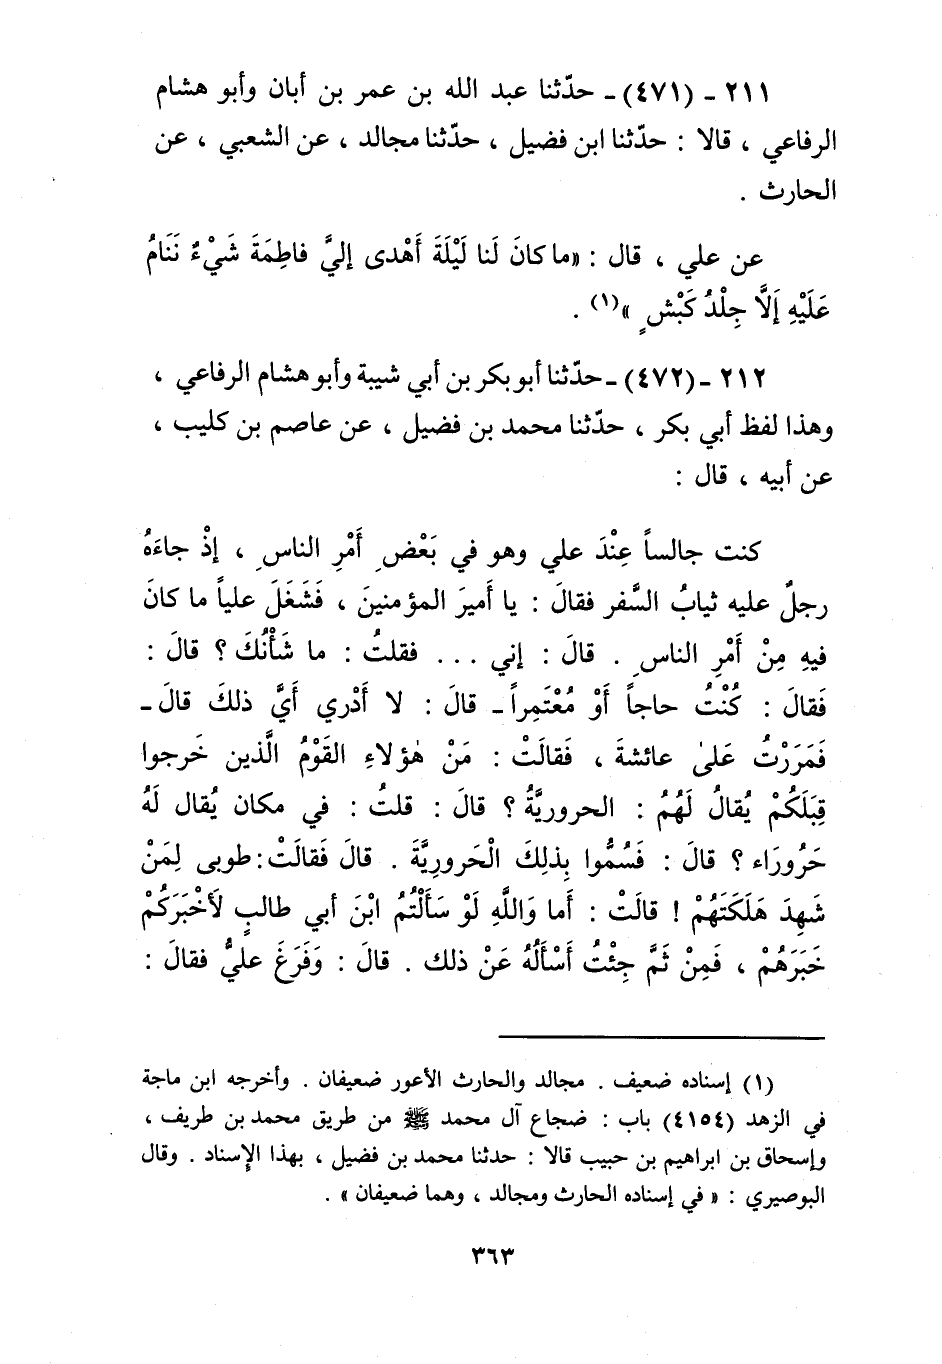 ٢١١ ـ (٤٧١) ـ حدّثنا عبد الله بن عمر بن أبان وأبو هشام
الرفاعي ، قالا : حدّثنا ابن فضيل ، حدّثنا مجالد ، عن الشعبي ، عن
الحارث .
عن علي ، قال : «ما كانَ لَنا لَيْلَةَ أَهْدى إليَّ فاطِمَةَ شَيْءٌ نَنَامُ
عَلَيْهِ إَلَّا جِلْدُ كَبْشٍ »(١) .
٢١٢ ـ (٤٧٢) ـ حدّثنا أبو بكر بن أبي شيبة وأبو هشام الرفاعي ،
وهذا لفظ أبي بكر ، حدّثنا محمد بن فضيل ، عن عاصم بن كليب ،
عن أبيه ، قال :
كنت جالساً عِنْدَ علي وهو في بَعْضِ أَمْرِ الناسِ ، إذْ جاءَهُ
رجلٌ عليه ثيابُ السَّفر فقالَ : يا أميرَ المؤمنينَ ، فَشَغَلَ علياً ما كانَ
فيهِ مِنْ أَمْرِ الناسِ . قالَ : إني ... فقلتُ : ما شَأْنُكَ ؟ قالَ :
فَقالَ : كُنْتُ حاجاً أَوْ مُعْتَمِراً ـ قالَ : لا أَدْري أَيَّ ذلكَ قالَ ـ
فَمَرَرْتُ عَلىٰ عائشةَ ، فَقالَتْ : مَنْ هٰؤلاءِ القَوْمُ الَّذين خَرجوا
قِبَلَكُمْ يُقالُ لَهُمُ : الحروريَّةُ ؟ قالَ : قلتُ : في مكان يُقال لَهُ
حَرُورَاء ؟ قالَ : فَسُمُّوا بِذلِكَ الْحَرورِيَّةَ . قالَ فَقالَتْ : طوبى لِمَنْ
شَهِدَ هَلَكَتَهُمْ ! قالَتْ : أما وَاللَّهِ لَوْ سَأَلْتُمُ ابْنَ أبي طالبٍ لَأَخْبَرَكُمْ
خَبَرَهُمْ ، فَمِنْ ثَمَّ جِئْتُ أَسْأَلُهُ عَنْ ذلك . قالَ : وَفَرَغَ عليٌّ فقالَ :
(١) إسناده ضعيف . مجالد والحارث الأعور ضعيفان . وأخرجه ابن ماجة
في الزهد (٤١٥٤) باب : ضجاع آل محمد ﷺ من طريق محمد بن طريف ،
وإسحاق بن ابراهيم بن حبيب قالا : حدثنا محمد بن فضيل ، بهذا الإسناد . وقال
البوصيري : « في إسناده الحارث ومجالد ، وهما ضعيفان » .
٣٦٣